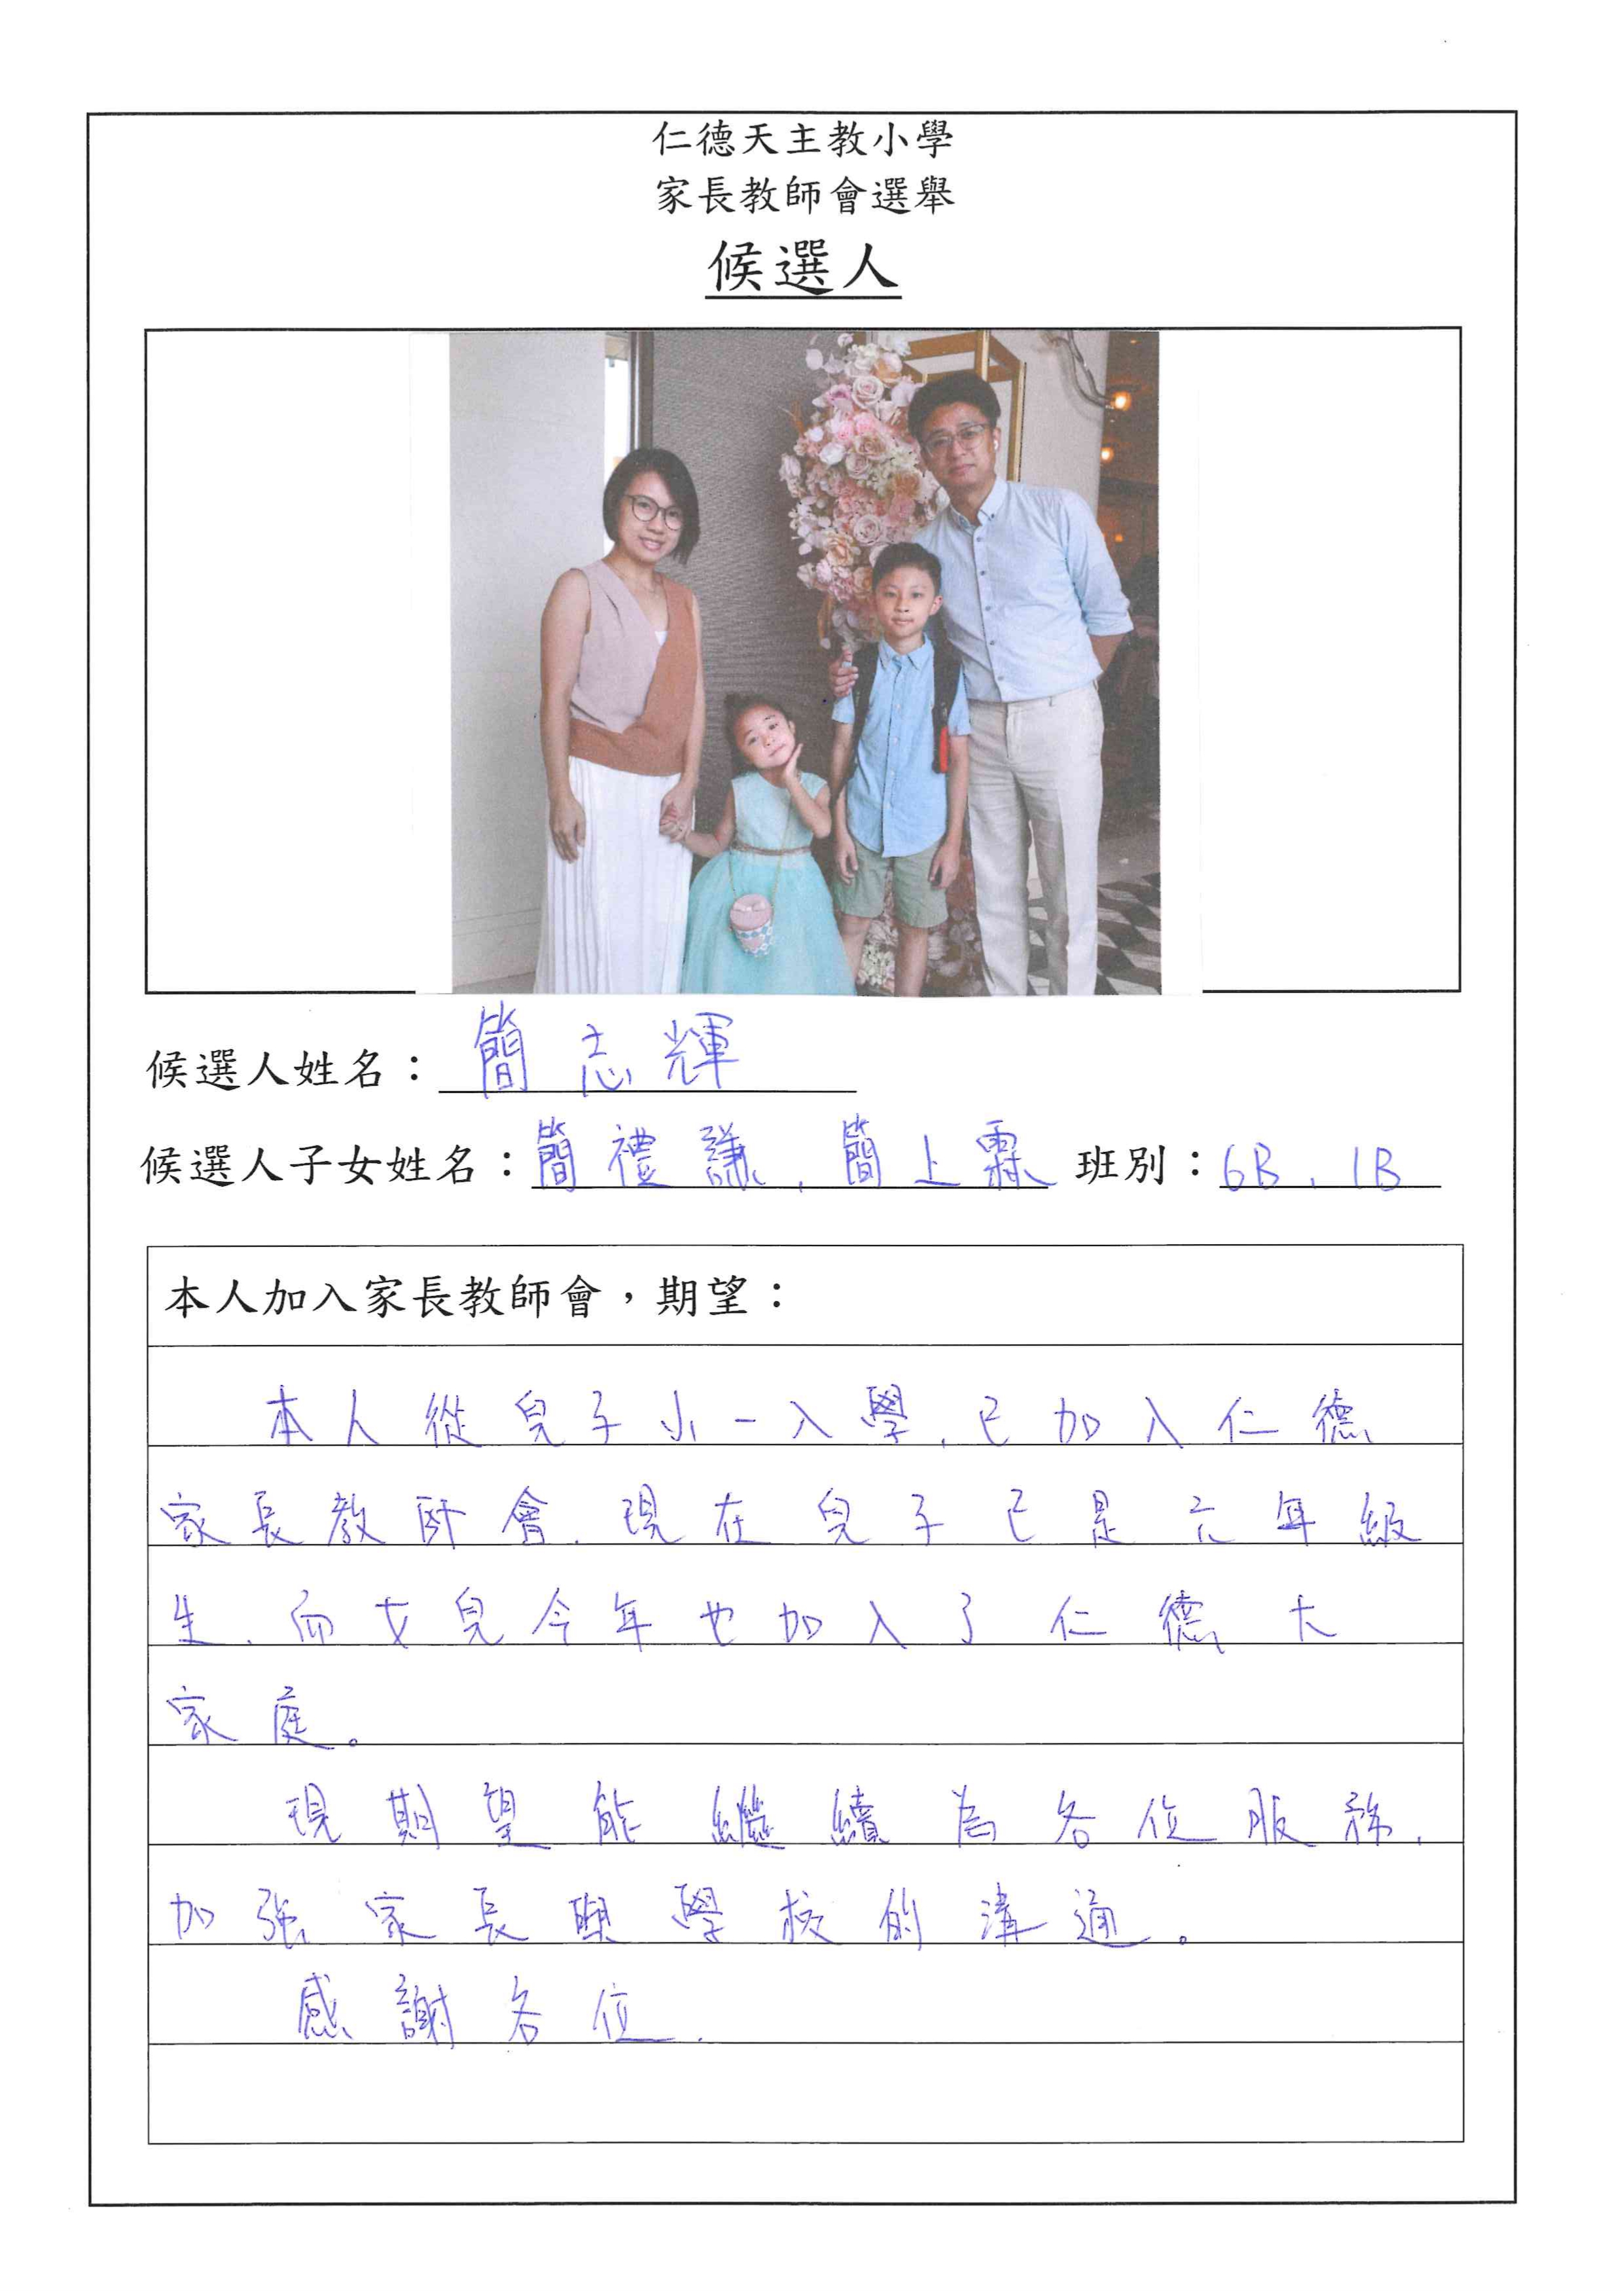 仁德天主教小學
家長教師會選舉
候選人
候選人姓名：簡志輝
候選人子女姓名：簡禮謙，簡上霖 班別：6B，1B
本人加入家長教師會，期望：
本人從兒子小一入學，已加入仁德
家長教師會．現在兒子已是六年級
生，而女兒今年也加入了仁德大
家庭。
現期望能繼續為各位服務，
加強家長與學校的溝通。
感謝各位．